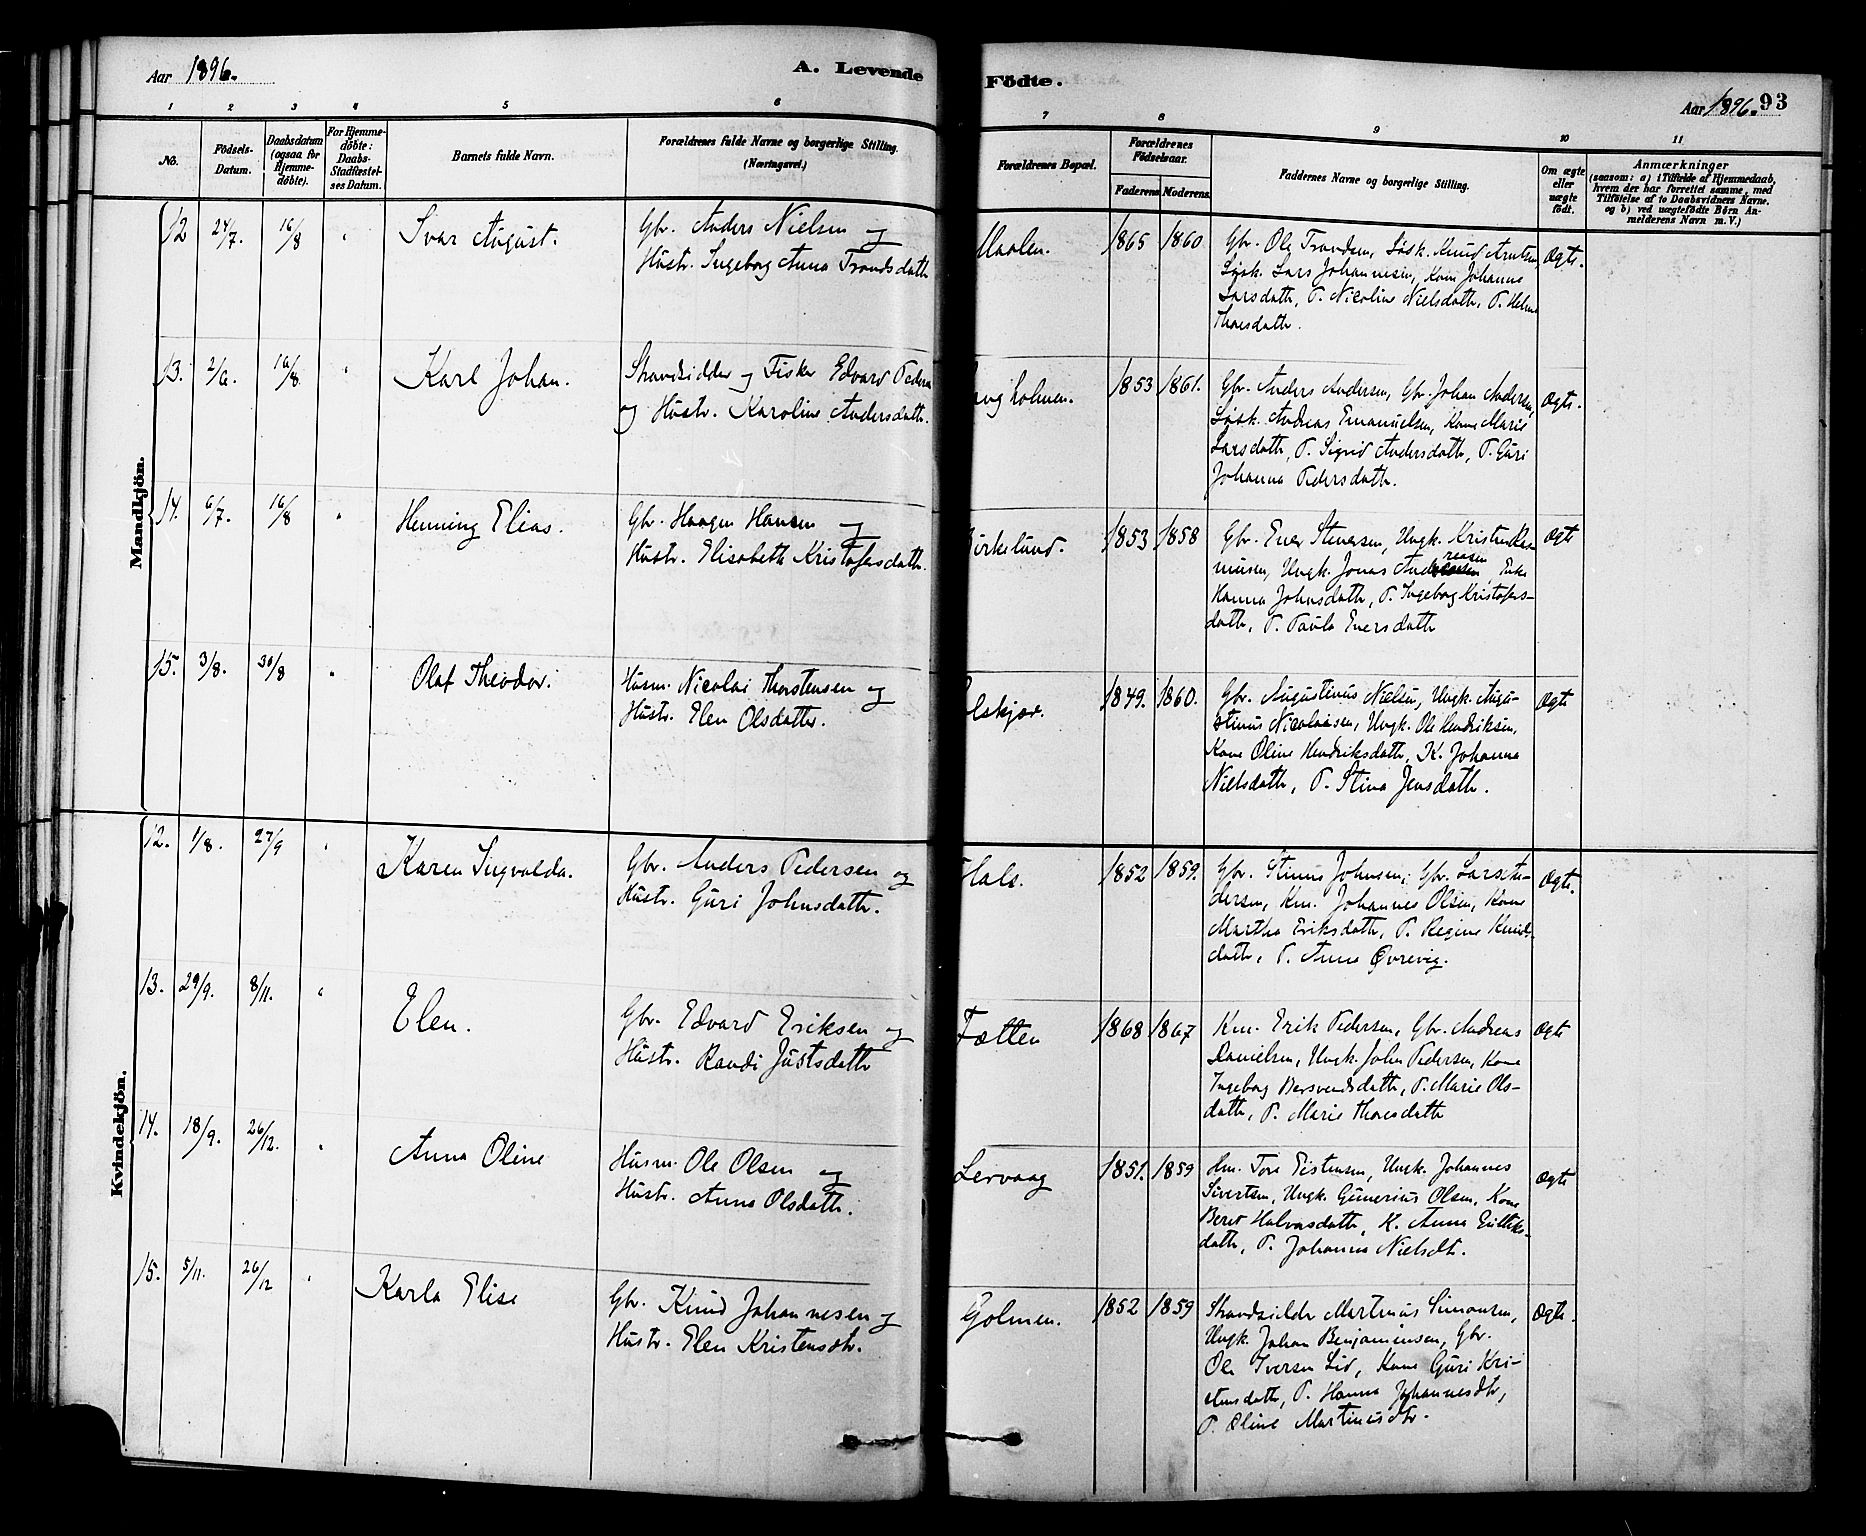 Aar 1896.
A. Levende
Födte.
Aar 1896. 93
1 2 3 4 5 6
7 8 9 10 11
No.
Födsels-
Datum.
Daabsdatum
(ogsaa for
Hjemme-
døbte).
For Hjemme-
døbte:
Daabs-
Stadfæstel-
ses Datum.
Barnets fulde Navn.
Forældrenes fulde Navne og borgerlige Stilling.
(Næringsvei.)
Forældrenes Bopæl.
Forældrenes
Födselsaar.
Faderens. Moderens.
Faddernes Navne og borgerlige Stilling.
Om ægte
eller
uægte
födt.
Anmærkninger
(saasom: a) i Tilfælde af Hjemmedaab,
hvem der har forrettet samme, med
Tilföielse af to Daabsvidners Navne,
og b) ved uægtefödte Börn An-
melderens Navn m. V.)
Mandkjön.
12 24/7. 16/8 " Ivar August.
Gbr. Anders Nielsen og
Hustr. Ingeborg Anna Trondsdatter
Maalen. 1865 1860
Gbr. Ole Trondsen, Løsk. Knud Arntsen,
Løsk. Lars Johannesen, Kone Johanna
Larsdatter, P. Nicoline Nielsdatter, P. Helene
Thoresdatter.
Ægte.
13. 2/6. 16/8 " Karl Johan.
Strandsidder og Fisker Edvard Peders
og Hustr. Karoline Andersdatter.
holmen. 1853 1861.
Gbr. Anders Andersen, Gbr. Johan Andersen,
Løsk. Andreas Emanuelsen, Kone Marie
Larsdatter, P. Sigrid Andersdatter, P. Guri
Johanna Pedersdatter.
Ægte.
14. 6/7. 16/8 " Henning Elias.
Gbr. Haagen Hansen og
Hustr. Elisabeth Kristofersdatter.
Birkelund. 1853 1858
Gbr. Ener Stenersen, Ungk. Kristen Ras-
mussen, Ungk. Jonas Andreasen, Enke
Hanna Johnsdatter, P. Ingeborg Kristofers-
datter, P. Paula Enersdatter
Ægte
15. 3/8. 30/8 " Olaf Theodor.
Husm. Nicolai Thorstensen og
Hustr. Elen Olsdatter.
Olskjær. 1849. 1860.
Gbr. Augustinus Nielsen, Ungk. Augu-
stinus Nicolaisen, Ungk. Ole Hendriksen,
Kone Oline Hendriksdatter, K. Johanna
Nielsdatter, P. Stina Jensdatter.
Ægte
Kvindekjön.
12. 1/8. 27/9 " Karen Ingvalda.
Gbr. Anders Pedersen og
Hustr. Guri Johnsdatter.
Hals. 1852 1859.
Gbr. Stinus Johnsen, Gbr. Lars Pe-
dersen, Km. Johannes Olsen, Kone
Martha Eriksdatter, P. Regine Knuds-
datter, P. Anna Øvrevig.
Ægte.
13. 29/9. 8/11. " Elen.
Gbr. Edvard Eriksen og
Hustr. Randi Justsdatter
Fætten 1868 1867
Km. Erik Pedersen, Gbr. Andreas
Danielsen, Ungk. John Pedersen, Kone
Ingeborg Bersvendsdatter, P. Marie Ols-
datter, P. Marie Thoresdatter
Ægte
14. 18/9. 26/12. " Anna Oline
Husm. Ole Olsen og
Hustr. Anna Olsdatter.
Lervaag 1851. 1859
Hm. Tore Eistensen, Ungk. Johannes
Sivertsen, Ungk. Gunerius Olsen, Kone
Beret Halvorsdatter, K. Anna
datter, P. Johanna Nielsdt.
Ægte
15. 5/11. 26/12 " Karla Elise
Gbr. Knud Johannesen og
Hustr. Elen Kristensdtr.
Golmen. 1852 1859
Strandsidder Martinus Simonsen,
Ungk. Johan Benjaminsen, Gbr.
Ole Iversen Lid, Kone Guri Kri-
stensdatter, P. Hanna Johannesdtr,
P. Oline Martinusdtr.
Ægte.